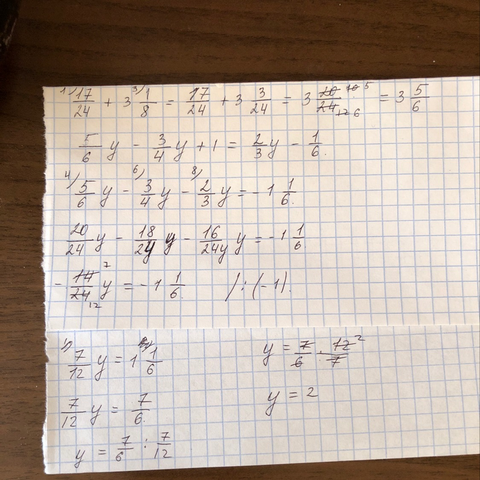 17/24 + 3 1/8 = 17/24 + 3 3/24 = 3 20/24 10 5 12 6 = 3 5/6
5/6 y - 3/4 y + 1 = 2/3 y - 1/6.
4) 5/6 y - 6) 3/4 y - 8) 2/3 y = -1 1/6.
20/24 y - 18/24 y - 16/24 y = -1 1/6
- 14/24 7 12 y = -1 1/6. /:(-1).
7/12 y = 1 1/6
7/12 y = 7/6.
y = 7/6 : 7/12
y = 7/6 · 12/7 2
y = 2